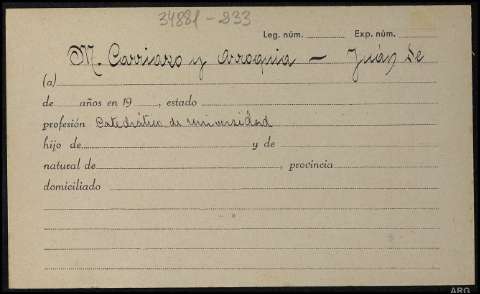 34881-233
Leg. núm. Exp. núm.
M. Carriazo y Arroquia - Juán de
(a)
de años en 19 , estado
profesión Catedrático de universidad
hijo de y de
natural de , provincia
domiciliado
ARG